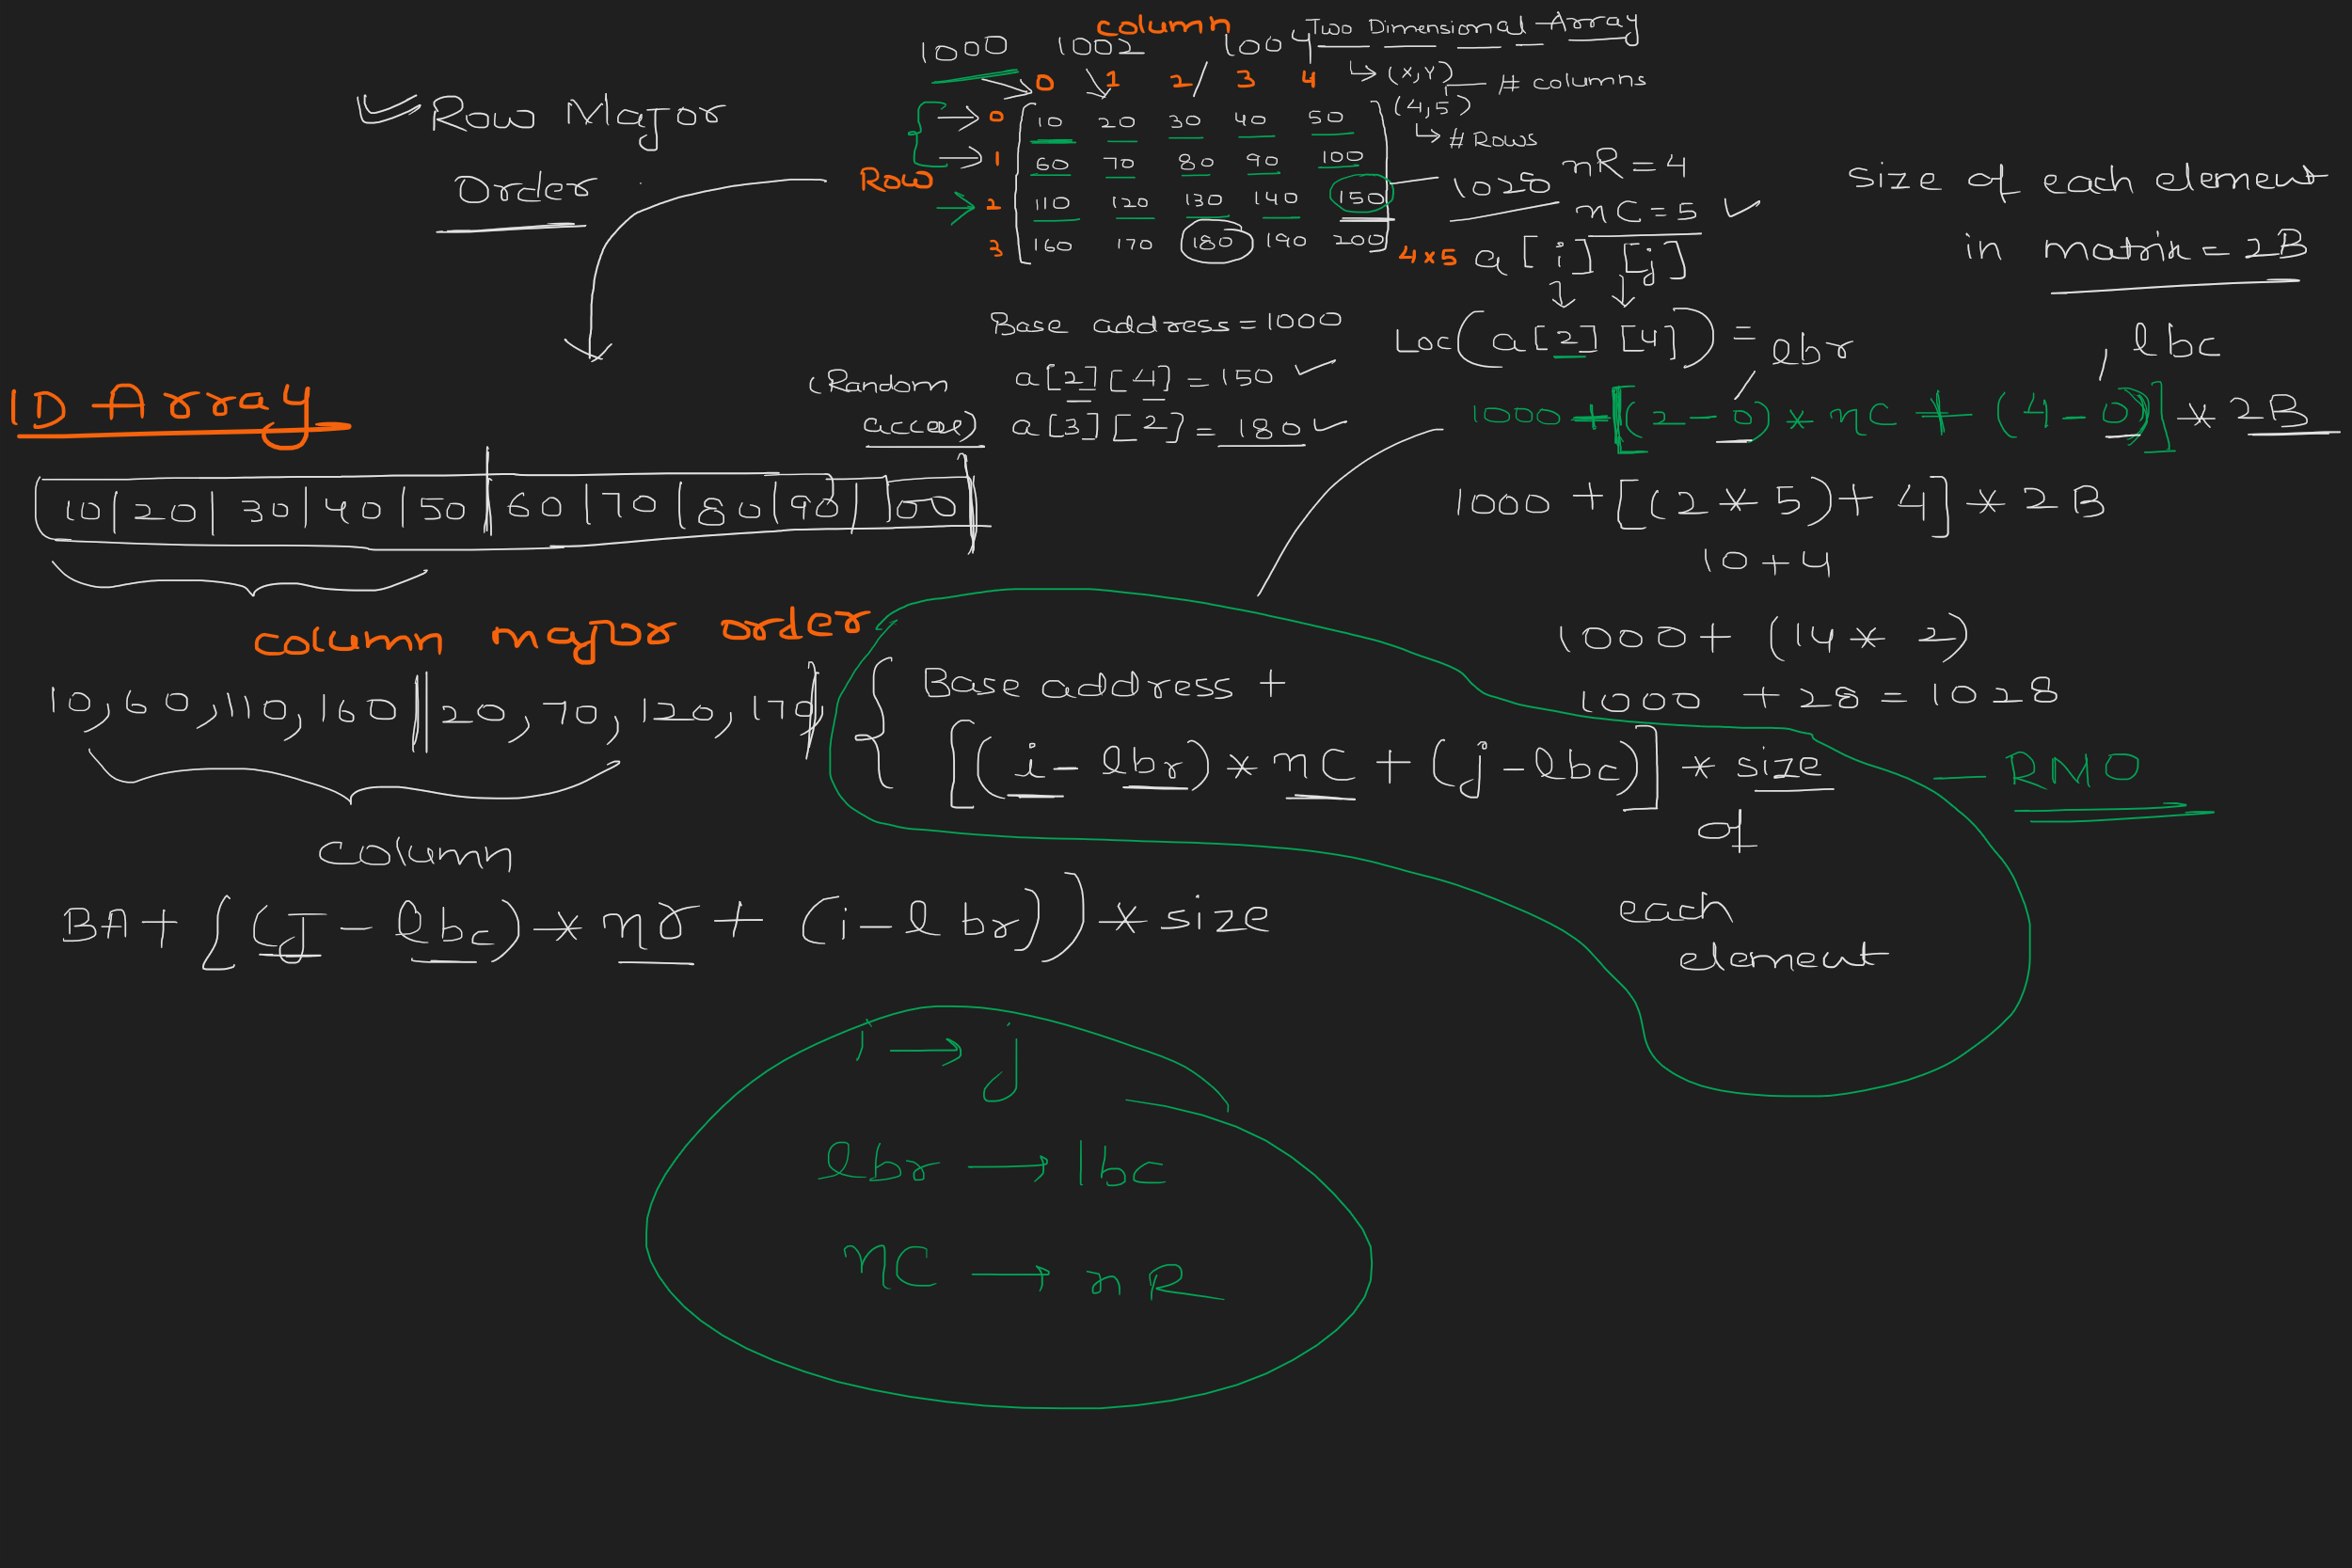 column
Two Dimensional Array
1000 1002 1004
(x,y)
# columns
(4,5)
# Rows
0 1 2 3 4
Row Major
Order
Row
0 10 20 30 40 50
1 60 70 80 90 100
2 110 120 130 140 150
3 160 170 180 190 200
4x5
1028
nR = 4
nC = 5
a[i][j]
size of each element
in matrix = 2B
Base address = 1000
(Random
access)
a[2][4] = 150
a[3][2] = 180
Loc(a[2][4]) =
lbr
, lbc
1000 + [(2-0) * nC + (4-0)] * 2B
1000 + [(2 * 5) + 4] * 2B
10 + 4
1000 + (14 * 2)
1000 + 28 = 1028
1D Array
10|20|30|40|50|60|70|80|90|100
column major order
10, 60, 110, 160 || 20, 70, 120, 170
column
{ Base address +
[(i - lbr) * nC + (j - lbc)] * size
of
each
element
— RMO
BA + [(J - lbc) * nr + (i - lbr)] * size
i → j
lbr → lbc
nC → nR